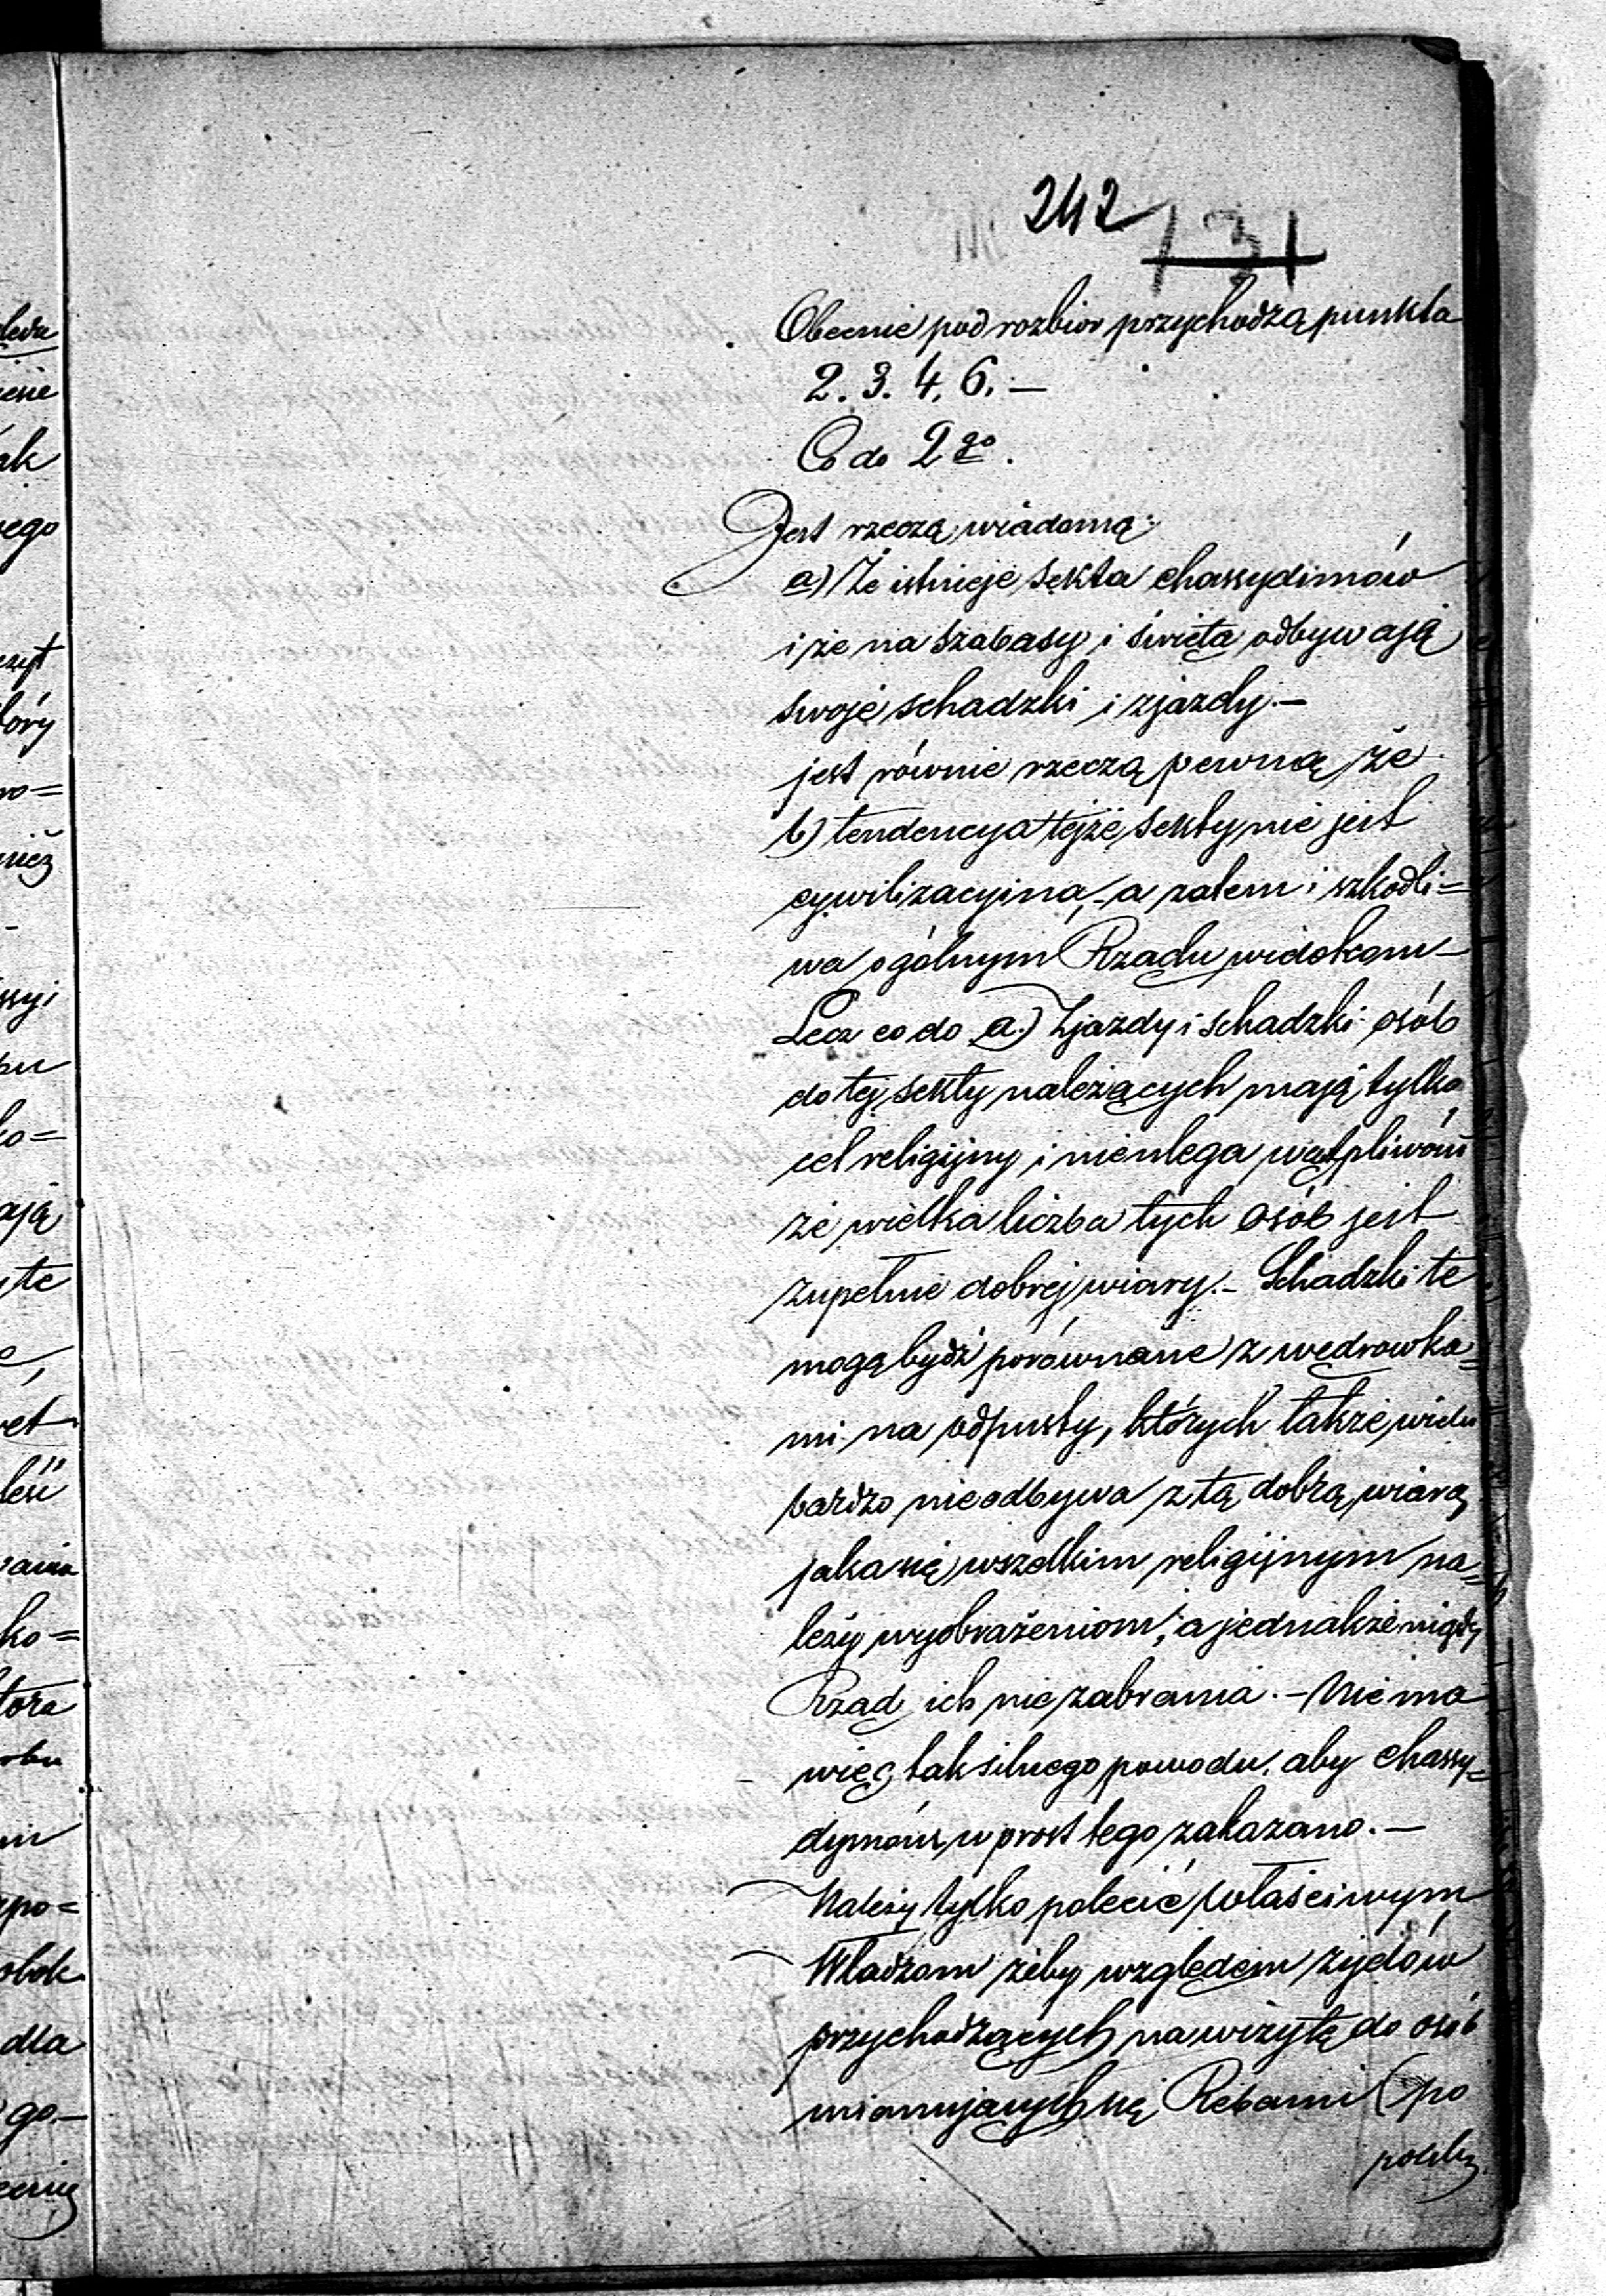 242
131
Obecnie pod rozbior przychodzą punkta
2. 3. 4. 6. —
Co do 2go.
Jest rzeczą wiadomą:
a) Że istnieje sekta chassydimów
i że na szabasy i święta odbywają
swoje schadzki i zjazdy. —
jest równie rzeczą pewną, że
b) tendencya tejże sekty nie jest
cywilizacyjna, - a zatem i szkodli=
wa ogólnym Rządu widokom —
Lecz co do a.) Zjazdy i schadzki osób
do tej sekty należących mają tylko
cel religijny i nieulega wątpliwości
że wielka liczba tych osób jest
zupełnie dobrej wiary. - Schadzki te
mogą bydź porównane z wędrowka=
mi na odpusty, których także wielu
bardzo nieodbywa z tą dobrą wiarą
jaka się wszelkim religijnym na=
leży wyobrażeniom; a jednakże nigdy
Rząd ich nie zabrania. - Nie ma
więc tak silnego powodu, aby Chassy=
dymom wprost tego zakazano. —
Należy tylko polecić właściwym
Władzom żeby względem żydów
przychodzących na wizytę do osób
mianujących się Rebami (po
polsku